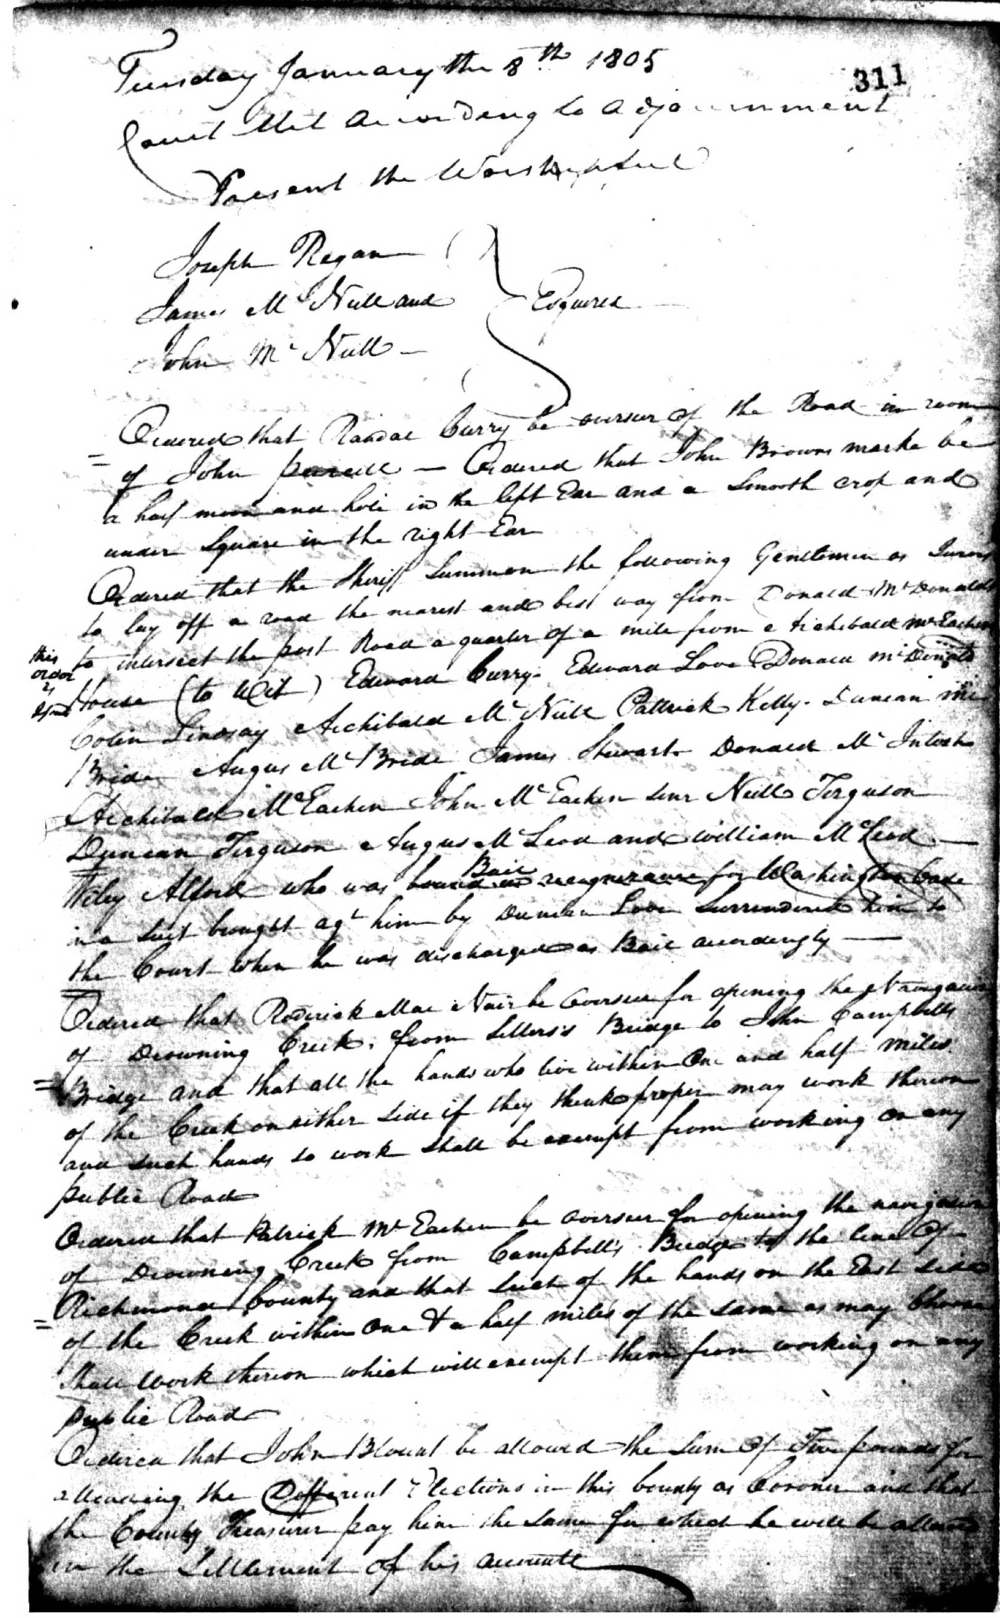 311
Tuesday January the 8th 1805
Court Met According to Adjournment
Present the Worshipful
Joseph Regan
James McNeill and Esquires
John McNeill
Ordered that Randal Curry be overseer of the Road in room
of John Purcell — Ordered that John Browns marke be
a half moon and hole in the left Ear and a Smooth crop and
under Square in the right Ear
Ordered that the Sheriff Summon the following Gentlemen as Jurors
to lay off a road the nearest and best way from Donald McDonalds
to intersect the post Road a quarter of a mile from Archibald McEachins
this order is
House (to Wit) Edward Curry Edward Love Donald McDonald
Colin Lindsay Archibald McNeill Pattrick Kelly Duncan Mc
Bride Angus McBride James Stewart Donald McIntosh
Archibald McEachen John McEachen Senr Neill Ferguson
Duncan Ferguson Angus McLeod and William McLeod —
Wiley Alford who was bound in recognizance Bail for Washington Cade
in a Suit brought agt him by Duncan Love Surrendered him to
the Court when he was discharged as Bail accordingly —
Ordered that Roderick MacNair be Overseer for opening the Navigation
of Drowning Creek from Sellers's Bridge to John Campbells
Bridge and that all the hands who live within One and half miles
of the Creek on either Side if they think proper may work thereon
and such hands so work Shall be exempt from working on any
public Road
Ordered that Patrick McEachen be Overseer for opening the navigation
of Drowning Creek from Campbell's Bridge to the line of
Richmond County and that Such of the hands on the East Side
of the Creek within One & a half miles of the Same as may Choose
Shall Work thereon which will exempt them from working on any
public Road
Ordered that John Blount be allowed the Sum of Five pounds for
attending the Different Elections in this County as Coroner and that
the County Treasurer pay him the Same for which he will be allowed
in the Settlement of his accounts